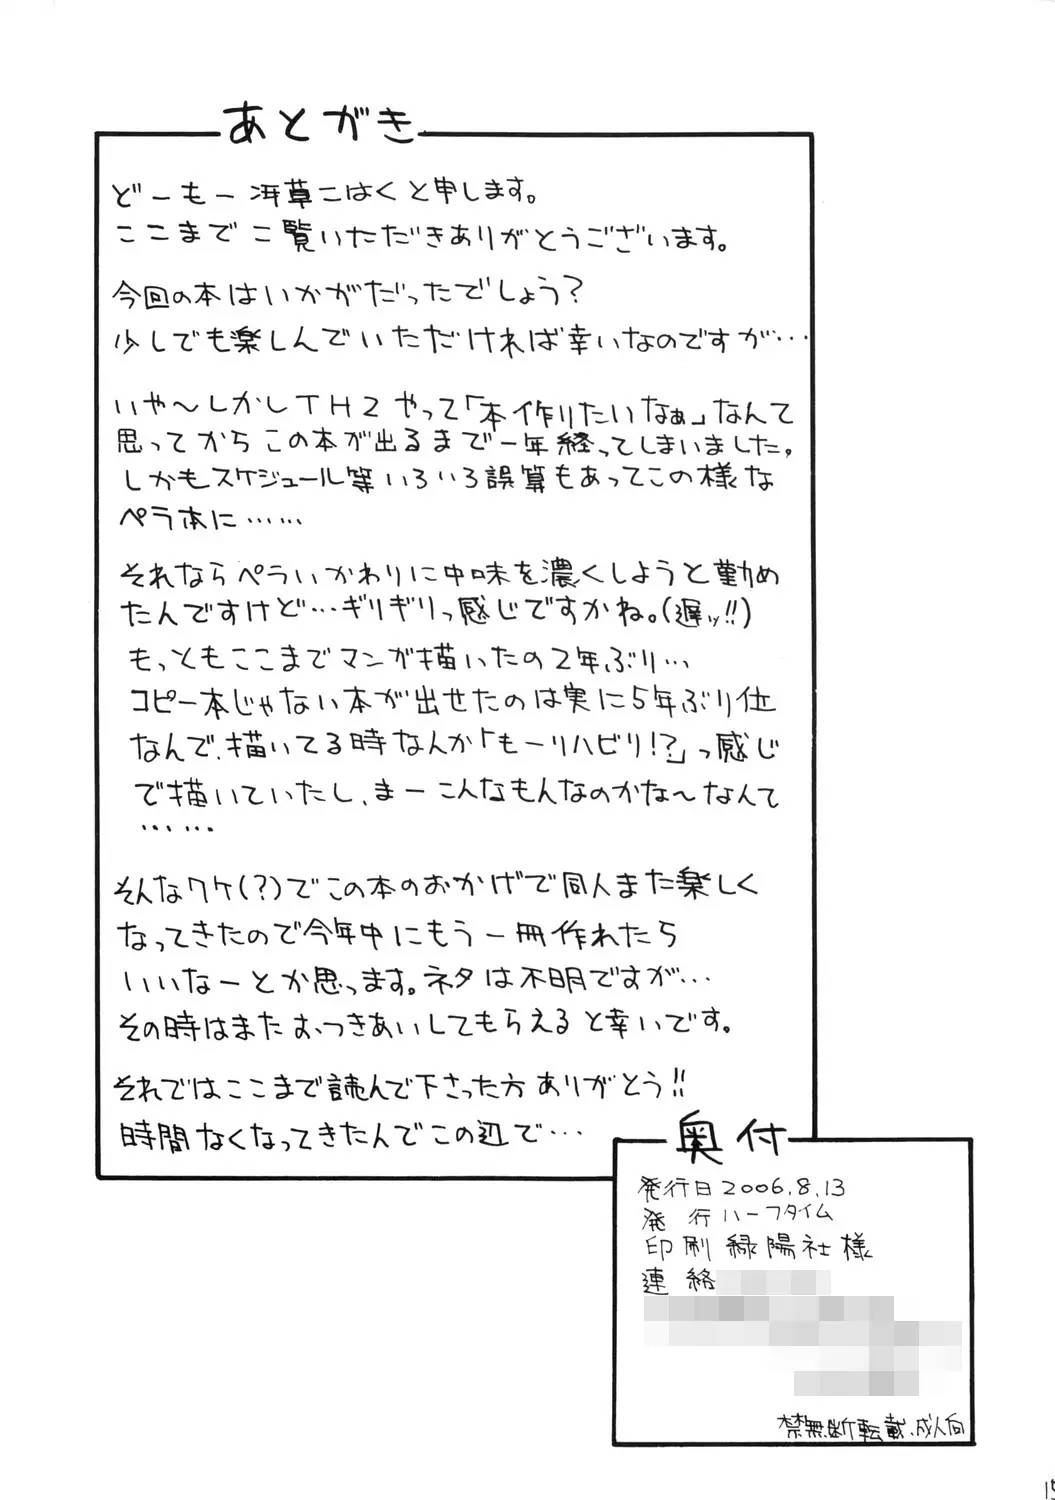 あとがき
どーもー冴草こはくと申します。
ここまでご覧いただきありがとうございます。
今回の本はいかがだったでしょう?
少しでも楽しんでいただければ幸いなのですが…
いや～しかしTH2やって「本作りたいなぁ」なんて
思ってからこの本が出るまで一年経ってしまいました。
しかもスケジュール等いろいろ誤算もあってこの様な
ペラ本に……
それならペラいかわりに中味を濃くしようと勤め
たんですけど…ギリギリっ感じですかね。(遅ッ!!)
もっともここまでマンガ描いたの2年ぶり…
コピー本じゃない本が出せたのは実に5年ぶり位
なんで、描いてる時なんか「もーリハビリ!?」っ感じ
で描いていたし、まーこんなもんなのかな～なんて
……
そんなワケ(?)でこの本のおかげで同人また楽しく
なってきたので今年中にもう一冊作れたら
いいなーとか思っます。ネタは不明ですが…
その時はまたおつきあいしてもらえると幸いです。
それではここまで読んで下さった方ありがとう!!
時間なくなってきたんでこの辺で…
奥付
発行日2006.8.13
発行 ハーフタイム
印刷 緑陽社様
連絡
禁無断転載、成人向
15